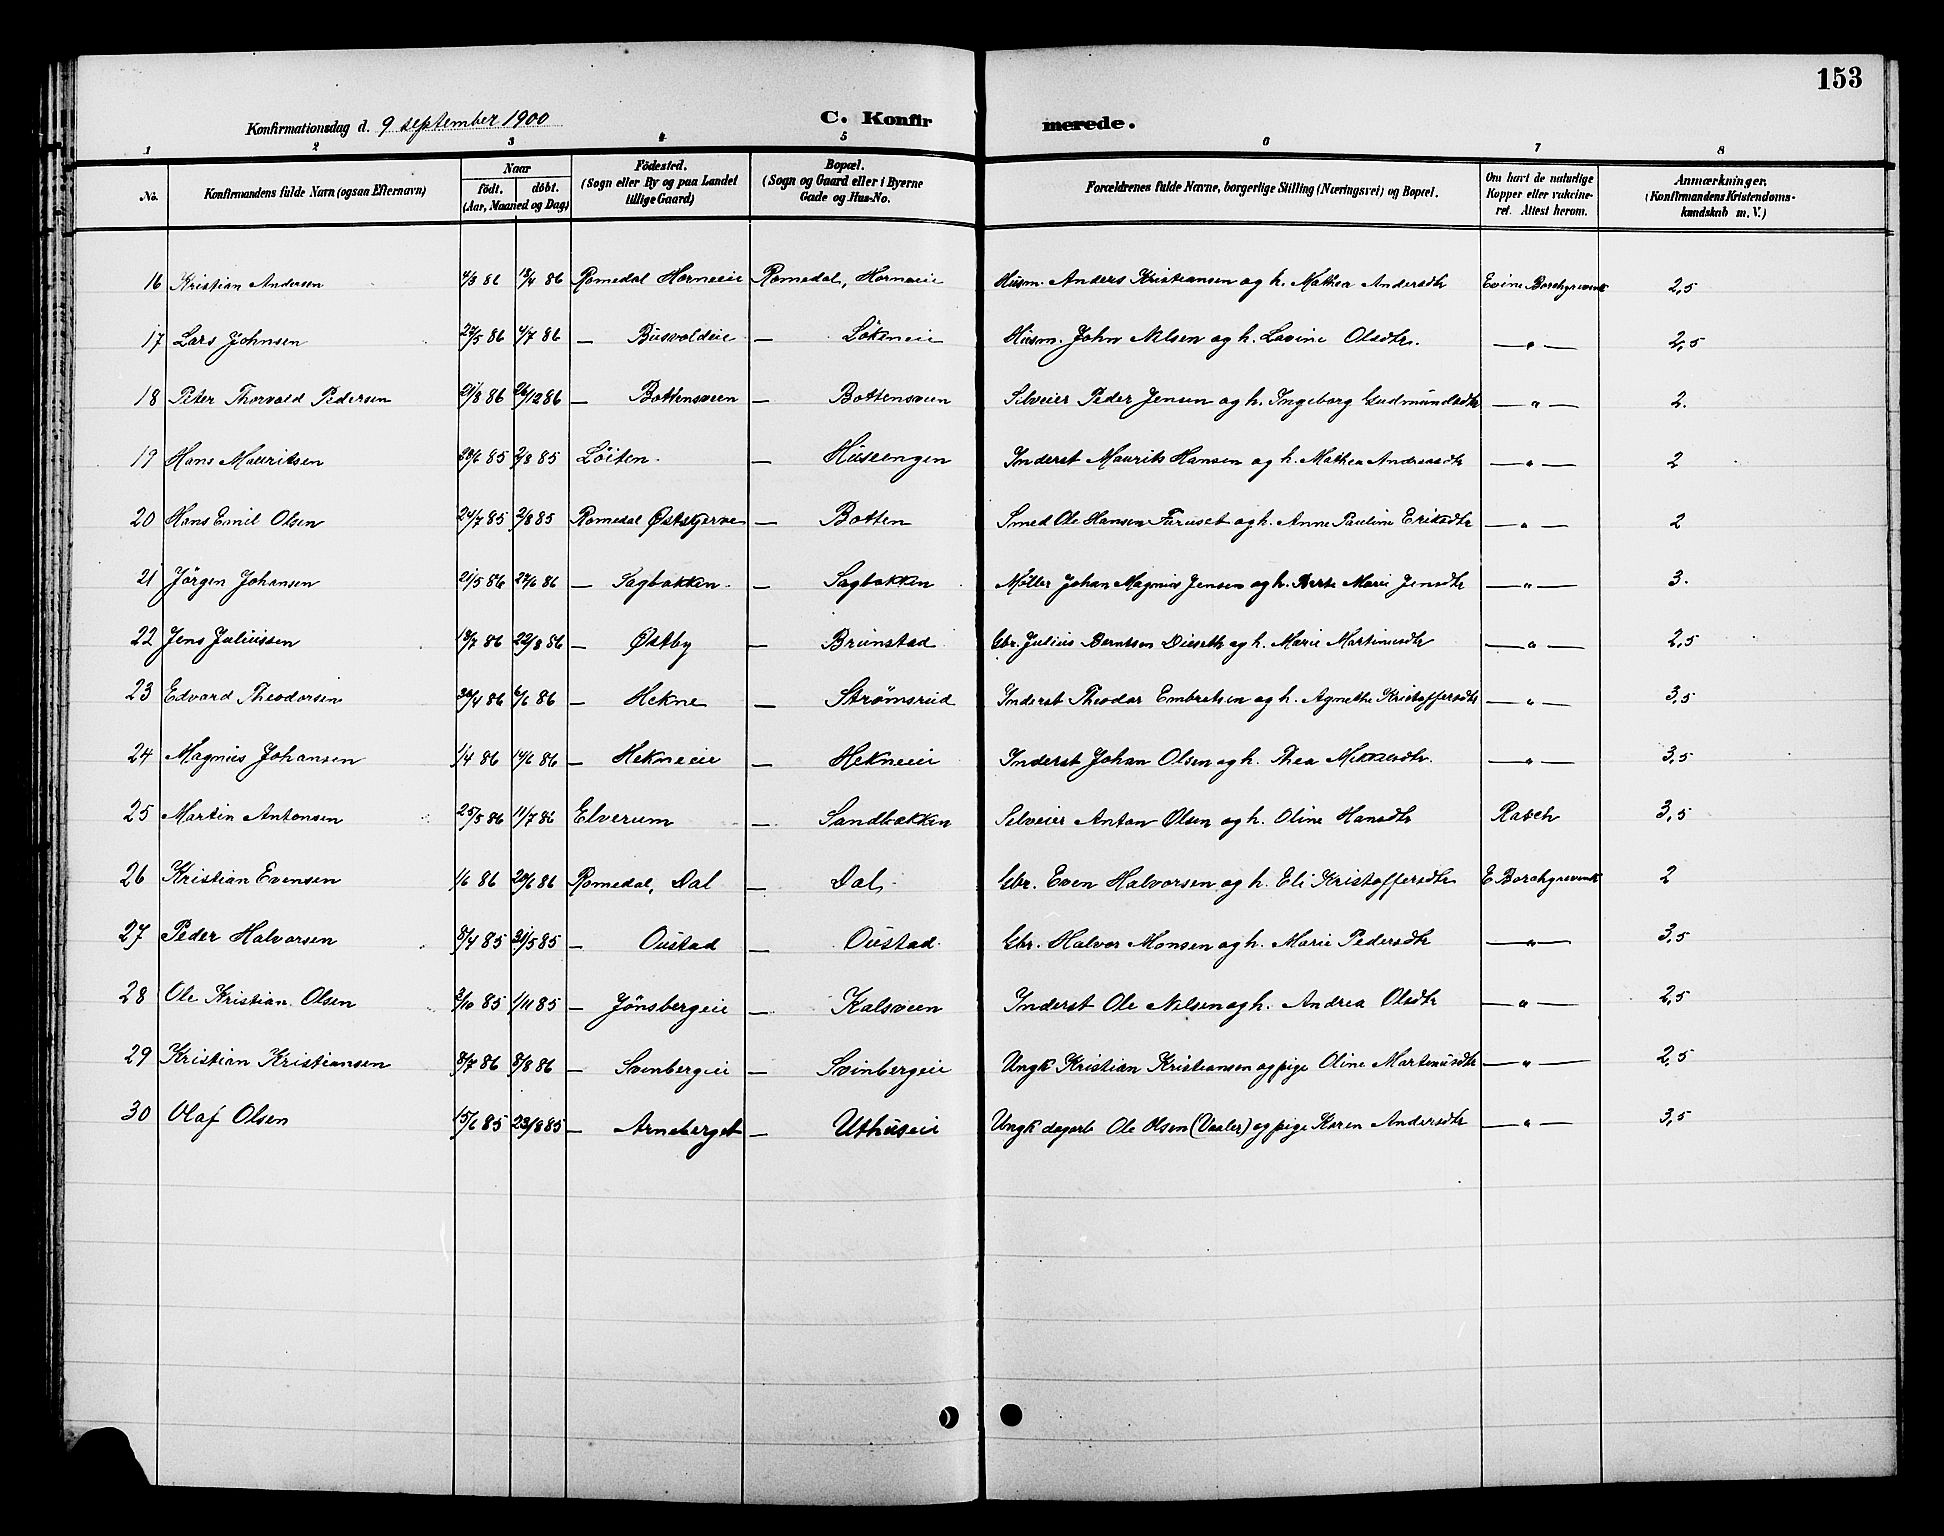 153
Konfirmationsdag d. 9 september 1900 C. Konfirmerede.
1 2 3 4 5 6 7 8
No. Konfirmandens fulde Navn (ogsaa Efternavn) Naar födt. döbt. (Aar, Maaned og Dag) Födested. (Sogn eller By og paa Landet tillige Gaard) Bopæl. (Sogn og Gaard eller i Byerne Gade og Hus-No. Forældrenes fulde Navne, borgerlige Stilling (Næringsvei) og Bopæl. Om havt de naturlige Kopper eller vakcineret. Attest herom. Anmærkninger. (Konfirmandens Kristendomskundskab m. V.)
16 Kristian Andersen 4/3 86 18/4 86 Romedal Horneeie Romedal, Horneeie Husm. Anders Kristiansen og h. Mathea Andersdtr Evine Borchgrevink 2,5
17 Lars Johnsen 27/5 86 4/7 86 — Busvoldeie — Lökeneie Husm. John Nilsen og h. Lovine Olsdtr. —"— 2,5
18 Peter Thorvald Pedersen 21/8 86 26/12 86 — Bottensveen — Bottensveen Selveier Peder Jensen og h. Ingeborg Gudmundsdtr —"— 2.
19 Hans Mauritsen 28/6 85 2/8 85 Löiten. — Husengen Inderst Maurits Hansen og h. Mathea Andreasdtr —"— 2
20 Hans Emil Olsen 24/7 85 2/8 85 Romedal Østkjerne — Botten Smed Ole Hansen Furuset og h. Anne Pauline Eriksdtr —"— 2
21 Jörgen Johansen 21/5 86 27/6 86 — Sagbakken. — Sagbakken Møller Johan Magnus Jensen og h. Berte Marie Jensdtr —"— 3.
22 Jens Juliussen 18/7 86 22/8 86 — Østby — Brunstad Gbr. Julius Berntsen Dieseth og h. Marie Martinusdtr —"— 2,5
23 Edvard Theodorsen 30/4 86 6/6 86 — Hekne — Strømsrud Inderst Theodor Embretsen og h. Agnethe Kristoffersdtr —"— 3,5
24 Magnus Johansen 1/4 86 14/6 86 — Hekneeie — Hekneeie Inderst Johan Olsen og h. Thea Mikkelsdtr. —"— 3,5
25 Martin Antonsen 25/5 86 11/7 86 Elverum — Sandbakken Selveier Anton Olsen og h. Oline Hansdtr Rasch 3,5
26 Kristian Evensen 1/6 86 20/6 86 Romedal, Dal — Dal, Gbr. Even Halvorsen og h. Eli Kristoffersdtr E Borchgrevink 2
27 Peder Halvorsen 8/4 85 31/5 85 — Oustad — Oustad. Gbr. Halvor Monsen og h. Marie Pedersdtr —"— 3,5
28 Ole Kristian Olsen 3/10 85 1/11 85 — Jönsbergeie — Kalsveen Inderst Ole Nilsen og h. Andrea Olsdtr —"— 2,5
29 Kristian Kristiansen 8/7 86 8/8 86 — Svinbergeie — Svinbergeie Ungk Kristian Kristiansen og pige Oline Martinusdtr —"— 2,5
30 Olaf Olsen 15/6 85 23/8 85 — Arneberget — Uthuseie Ungk dagarb Ole Olsen (Vaaler) og pige Karen Andersdtr —"— 3,5